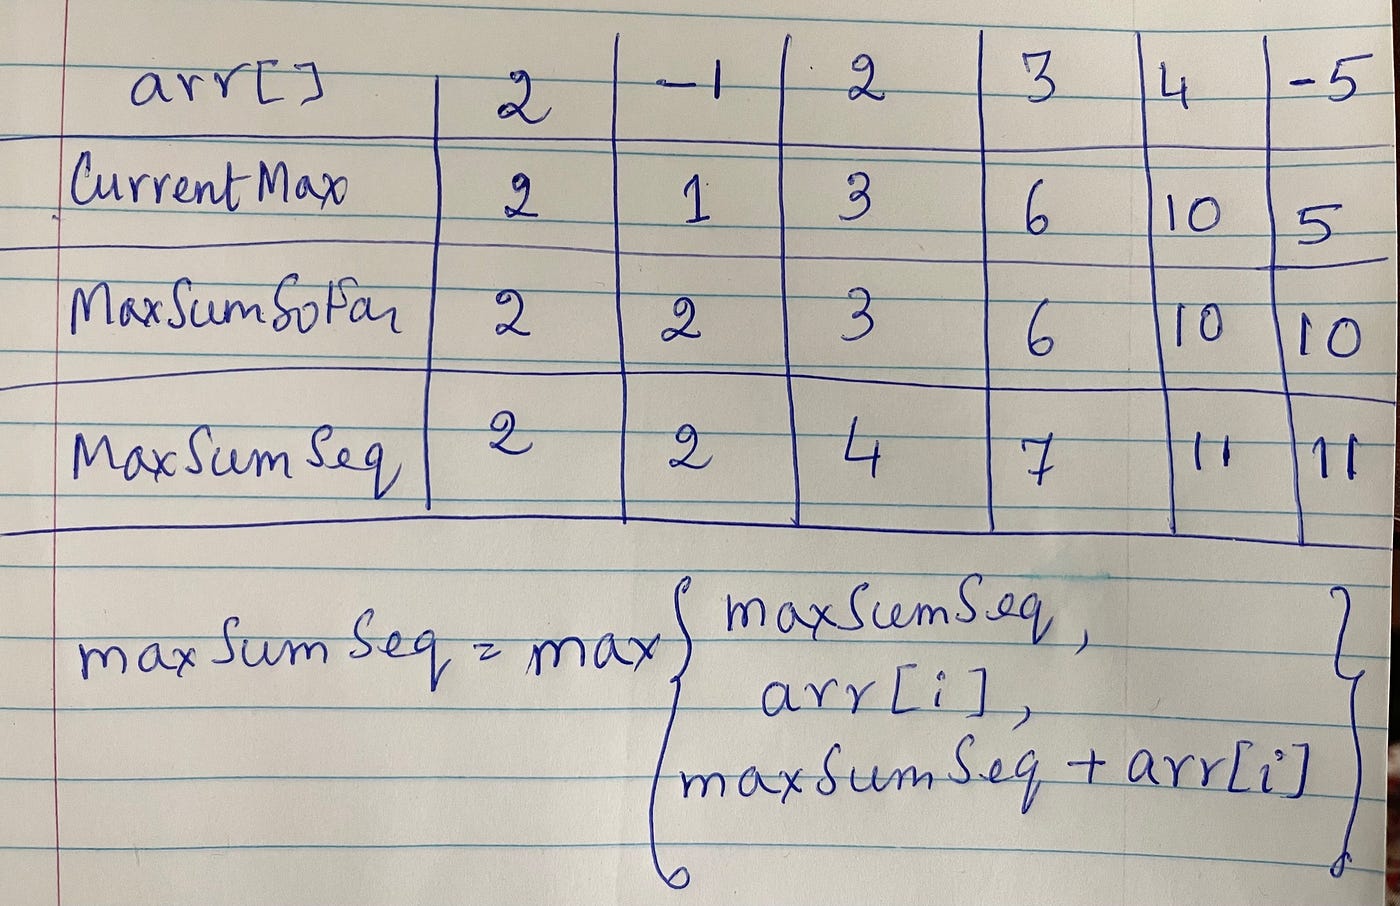 arr[] 2 -1 2 3 4 -5
CurrentMax 2 1 3 6 10 5
MaxSumSoFar 2 2 3 6 10 10
MaxSumSeq 2 2 4 7 11 11
maxSumSeq = max { maxSumSeq, }
arr[i],
maxSumSeq + arr[i]